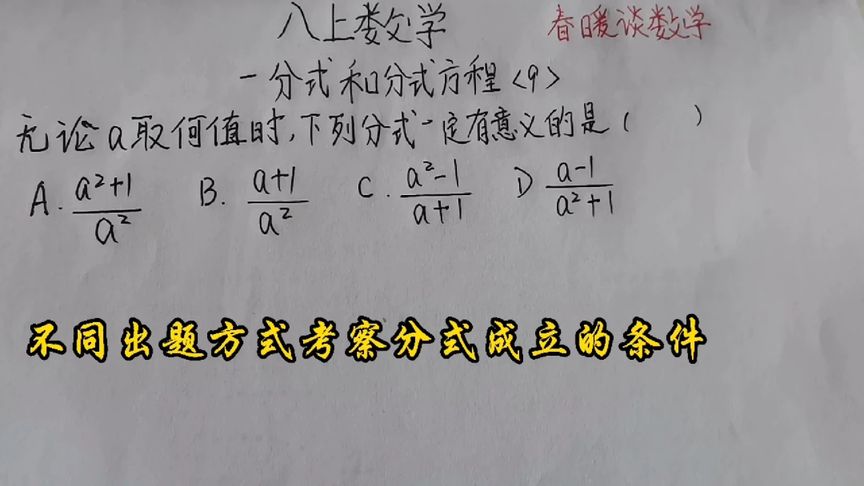 八上数学 春暖谈数学
一分式和分式方程<9>
无论a取何值时,下列分式一定有意义的是( )
A. a²+1/a² B. a+1/a² C. a²-1/a+1 D a-1/a²+1
不同出题方式考察分式成立的条件